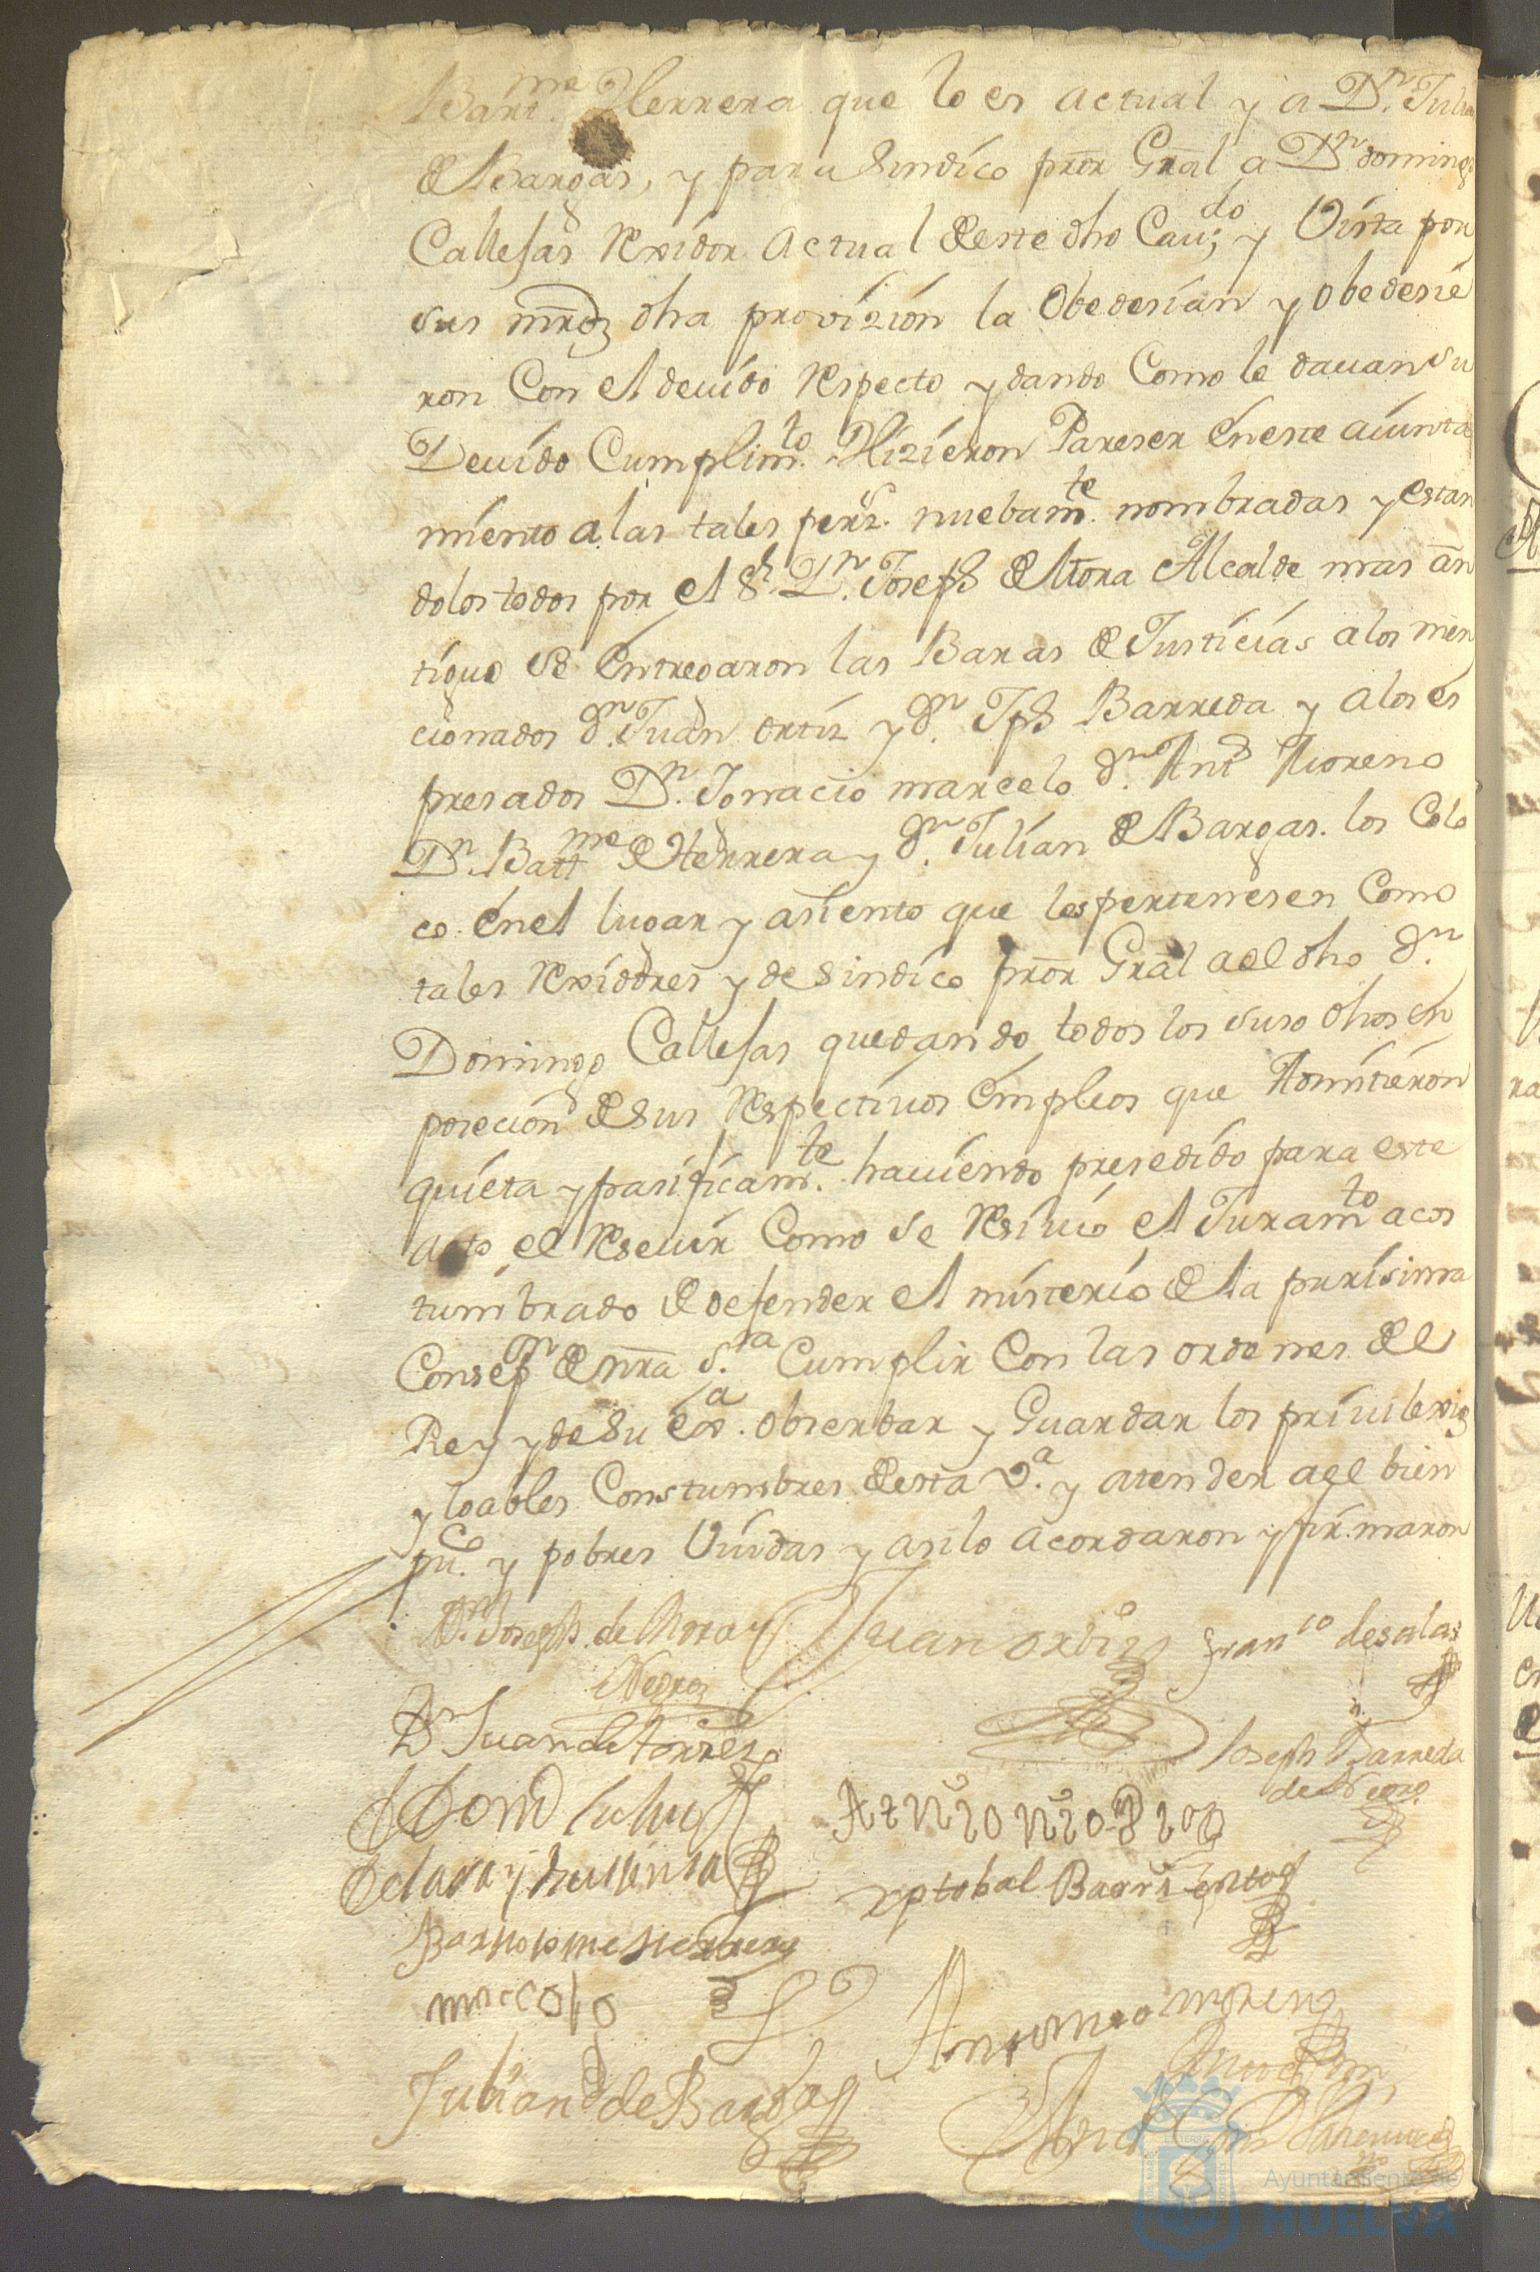 Bartme. Herrera que lo es actual y a Dn. Julian
de Bargas, y para Sindico pror Gral a Dn domingo
Callejas Rexidor actual deste dho Cauido; y Vista por
sus mrds dha provizion la Obedesian y obedesie
ron Con el deuido Respecto y dando Como le dauan su
Deuido Cumplimto. Hizieron Pareser en este aiunta
miento a las tales pers. nuebamte. nombradas y estan
dolos todos por el Sr. Dn. Joseph de Mora Alcalde mas an
tiguo se entregaron las Baras de Justicias a los men
cionados dn. Juan ortiz y dn. Jph Barreda y a los es
presados Dn. Ignacio marcelo dn. Anto Moreno
Dn. Battme de Herrera y dn. Julian de Bargas. los Colo
co en el lugar y asiento que les pertenesen Como
tales Rexidores y de Sindico pror Gral a el dho dn.
Domingo Callejas quedando todos los suso dhos en
posecion de sus Respectivos empleos que Admitieron
quieta y pasificamte. hauiendo presedido para este
acto el Reseuir Como se Resiuio el Juramto acos
tumbrado de defender el misterio de la purisima
Consepn de nra Sra Cumplir Con las ordenes de el
Rey y de su exa. obserbar y Guardar los priuilexios
y loables Constumbres de esta va. y atender a el bien
puco. y pobres Viudas y asi lo acordaron y firmaron
Dn. Joseph de Mora y Juan ortiz Franco de salas
Negron
Dn Juan de torres
Joseph Barreda
de Negro
Xptobal Barrientos
Bartholome Herrera
Antonio moreno
Julian de Bargas
Ayuntamiento de
HUELVA